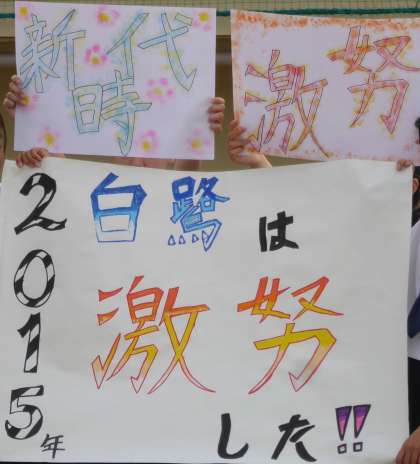 新時代
激努
2015年
白鷺は
激努
した!!